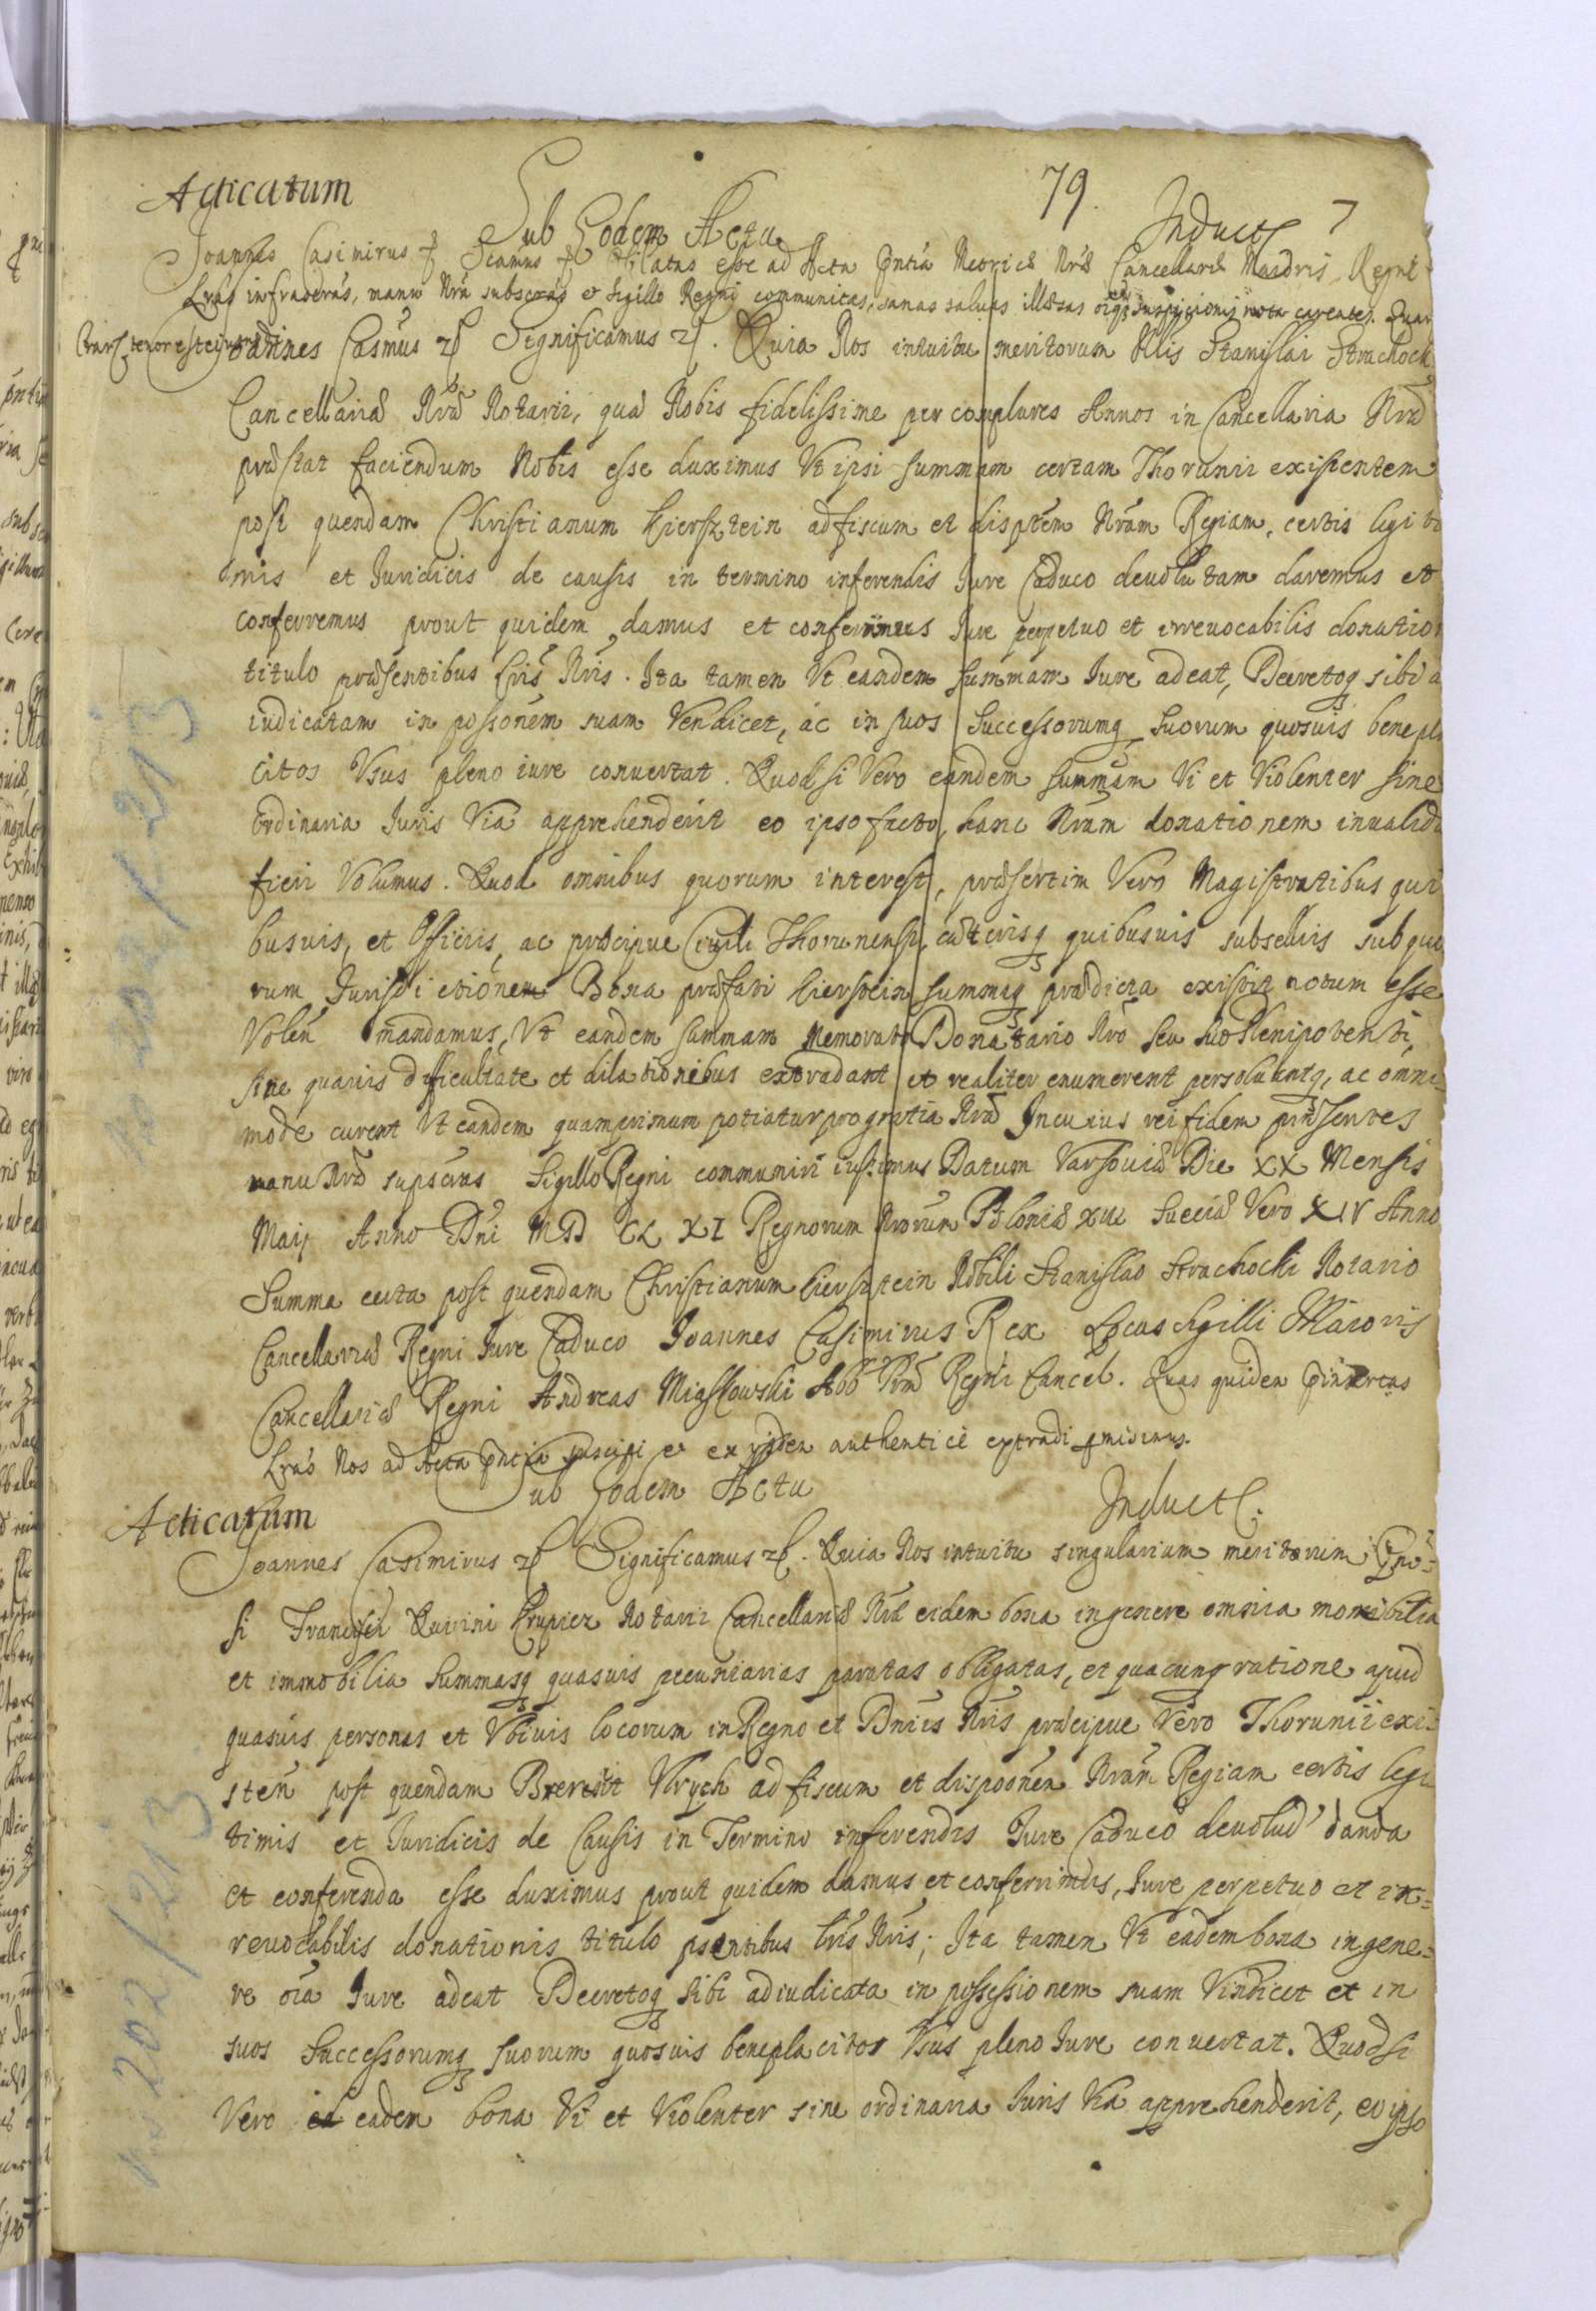 79.
Acticatum
Sub Eodem Actu
Induct
Joannes Casimirus Scamus oblatas esse ad Acta pntia Metrices Nrae Cancellariae Maioris Regni
Lras infrascras, manu Nra subscras et Sigillo Regni communitas, sanas saluas illaesas oiq suspicionis nota carentes. Quar
tenor est eiusmodi Joannes Casmus Significamus. Quia Nos intuitu meritorum Nlis Stanislai Strachock
Cancellariae Nrae Notarii, quae Nobis fidelissime per complures Annos in Cancellaria Nra
praestat faciendum Nobis esse duximus Vt ipsi summam certam Thorunii existentem
post quendam Christianum Kiersztein ad fiscum et disptem Nram Regiam, certis legiti
mis et Juridicis de causis in termino inferendis Jure Caduco deuolutam daremus et
conferremus prout quidem damus et conferimus Jure perpetuo et irreuocabilis donatio
titulo praesentibus Lris Nris. Ita tamen Vt eandem summam Jure adeat, Decretoq sibi a
iudicatam in possonem suam Vendicet, ac in suos Successorumq suorum quosuis benepla
citos Vsus pleno iure conuertat. Quod si Vero eandem summam Vi et Violenter sine
ordinaria Juris Via apprehenderit eo ipso facto, hanc Nram donationem inualida
fieri Volumus. Quod omnibus quorum interest, praesertim Vero Magistratibus qui
busuis, et Officiis, ac praecipue Ciuili Thorunensi, caeterisq quibusuis subselliis sub quo
rum Jurisdictionem Bona praefati Kierstein summaq praedicta existit notum esse
Volen mandamus, Vt eandem summam Memorato Donatario Nro seu suo Plenipotenti,
sine quauis difficultate et dilationibus extradant et realiter enumerent persoluantq, ac omni=
mode curent Vt eandem quamprimum potiatur pro gratia Nra In cuius rei fidem praesentes
manu Nra supscras Sigillo Regni communiri iussimus Datum Varsouiae Die XX Mensis
Maij Anno Dni MDCLXI Regnorum Nrorum Poloniae XIII Sueciae Vero XIV Anno
Summa certa post quendam Christianum Kiersztein Nobili Stanislao Strachocki Notario
Cancellariae Regni Jure Caduco Joannes Casimirus Rex Locus Sigilli Maioris
Cancellariae Regni Andreas Miaskowski Abb Prm Regni Cancel. Quas quidem pinsertas
Lras Nos ad Acta pntia suscipi et ex ijsdem authentice extradi pmisimus.
Sub Eodem Actu
Acticatum
Induct.
Joannes Casimirus Significamus. Quia Nos intuitu singularium meritorum Gno=
si Francisci Quirini Krupicz Notarii Cancellariae Nrae eidem bona in genere omnia mobilia
et immobilia Summasq quasuis pecuniarias paratas obligatas, et quacunq ratione apud
quasuis personas et Vbiuis locorum in Regno et Dniis Nris praecipue Vero Thorunii exi=
sten post quendam Vlrych ad fiscum et disponem Nram Regiam certis legi
timis et Juridicis de Causis in Termino inferendis Jure Caduco deuolud danda
et conferenda esse duximus prout quidem damus et conferrimus, Jure perpetuo et ir=
reuocabilis donationis titulo psentibus Lris Nris; Ita tamen Vt eadem bona in gene=
re oia Jure adeat Decretoq sibi adiudicata in possessionem suam Vindicet et in
suos Successorumq suorum quosuis beneplacitos Vsus pleno Jure conuertat. Quodsi
Vero eadem bona Vi et Violenter sine ordinaria Juris Via apprehenderit, eo ipso